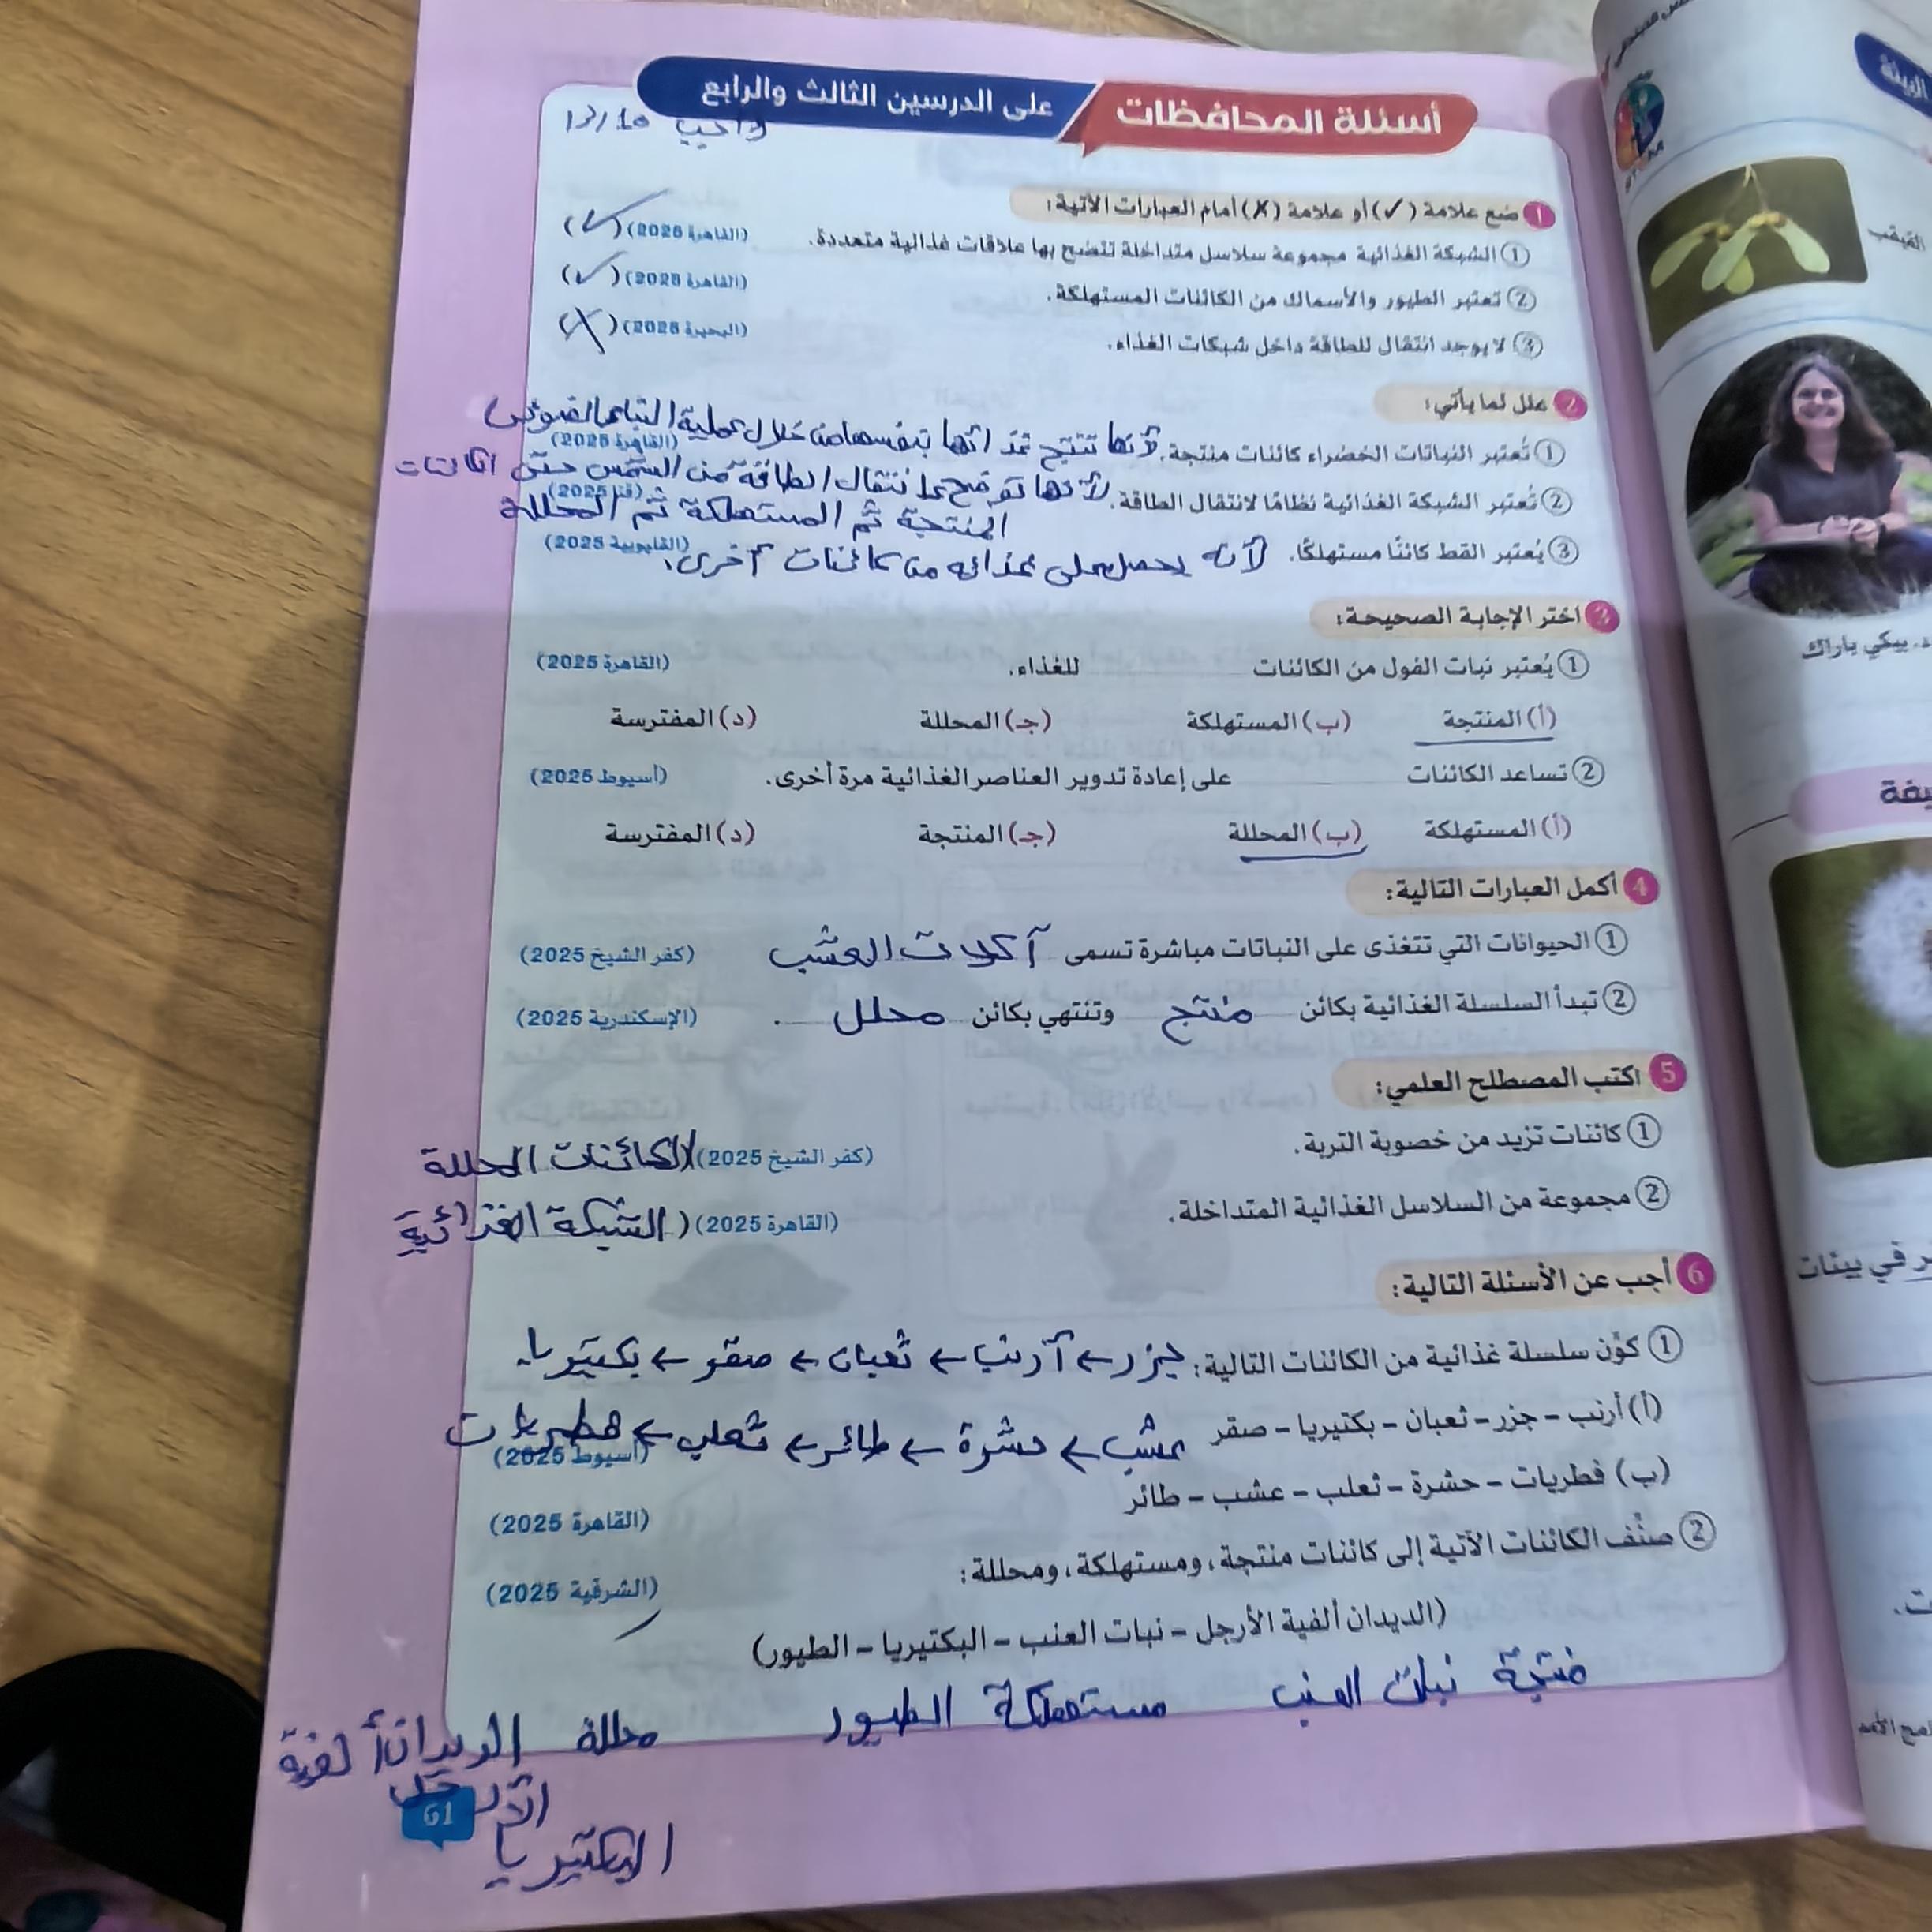 أسئلة المحافظات على الدرسين الثالث والرابع
واجب 13/10
1 ضع علامة (✓) أو علامة (✗) أمام العبارات الآتية:
① الشبكة الغذائية مجموعة سلاسل متداخلة تتضح بها علاقات غذائية متعددة. (القاهرة 2025) (✓)
② تعتبر الطيور والأسماك من الكائنات المستهلكة. (القاهرة 2025) (✓)
③ لا يوجد انتقال للطاقة داخل شبكات الغذاء. (البحيرة 2025) (✗)
2 علل لما يأتي:
① تُعتبر النباتات الخضراء كائنات منتجة. لأنها تنتج غذائها بنفسها من خلال عملية البناء الضوئي (القاهرة 2025)
② تُعتبر الشبكة الغذائية نظامًا لانتقال الطاقة. لأنها توضح انتقال الطاقة من الشمس حتى الكائنات (قنا 2025)
المنتجة ثم المستهلكة ثم المحللة
③ يُعتبر القط كائنًا مستهلكًا. لأنه يحصل على غذائه من كائنات أخرى. (القليوبية 2025)
3 اختر الإجابة الصحيحة:
① يُعتبر نبات الفول من الكائنات للغذاء. (القاهرة 2025)
(أ) المنتجة (ب) المستهلكة (جـ) المحللة (د) المفترسة
② تساعد الكائنات على إعادة تدوير العناصر الغذائية مرة أخرى. (أسيوط 2025)
(أ) المستهلكة (ب) المحللة (جـ) المنتجة (د) المفترسة
4 أكمل العبارات التالية:
① الحيوانات التي تتغذى على النباتات مباشرة تسمى آكلات العشب (كفر الشيخ 2025)
② تبدأ السلسلة الغذائية بكائن منتج وتنتهي بكائن محلل . (الإسكندرية 2025)
5 اكتب المصطلح العلمي:
① كائنات تزيد من خصوبة التربة. (كفر الشيخ 2025) (الكائنات المحللة
② مجموعة من السلاسل الغذائية المتداخلة. (القاهرة 2025) (الشبكة الغذائية
6 أجب عن الأسئلة التالية:
① كوّن سلسلة غذائية من الكائنات التالية: جزر ← أرنب ← ثعبان ← صقر ← بكتيريا
(أ) أرنب – جزر – ثعبان – بكتيريا – صقر عشب ← حشرة ← طائر ← ثعلب ← فطريات (أسيوط 2025)
(ب) فطريات – حشرة – ثعلب – عشب – طائر (القاهرة 2025)
② صنّف الكائنات الآتية إلى كائنات منتجة، ومستهلكة، ومحللة: (الشرقية 2025)
(الديدان ألفية الأرجل – نبات العنب – البكتيريا – الطيور)
منتجة نبات العنب مستهلكة الطيور محللة الديدان ألفية
الأرجل
البكتيريا
61
القيقب
د. بيكي باراك
ر في بيئات